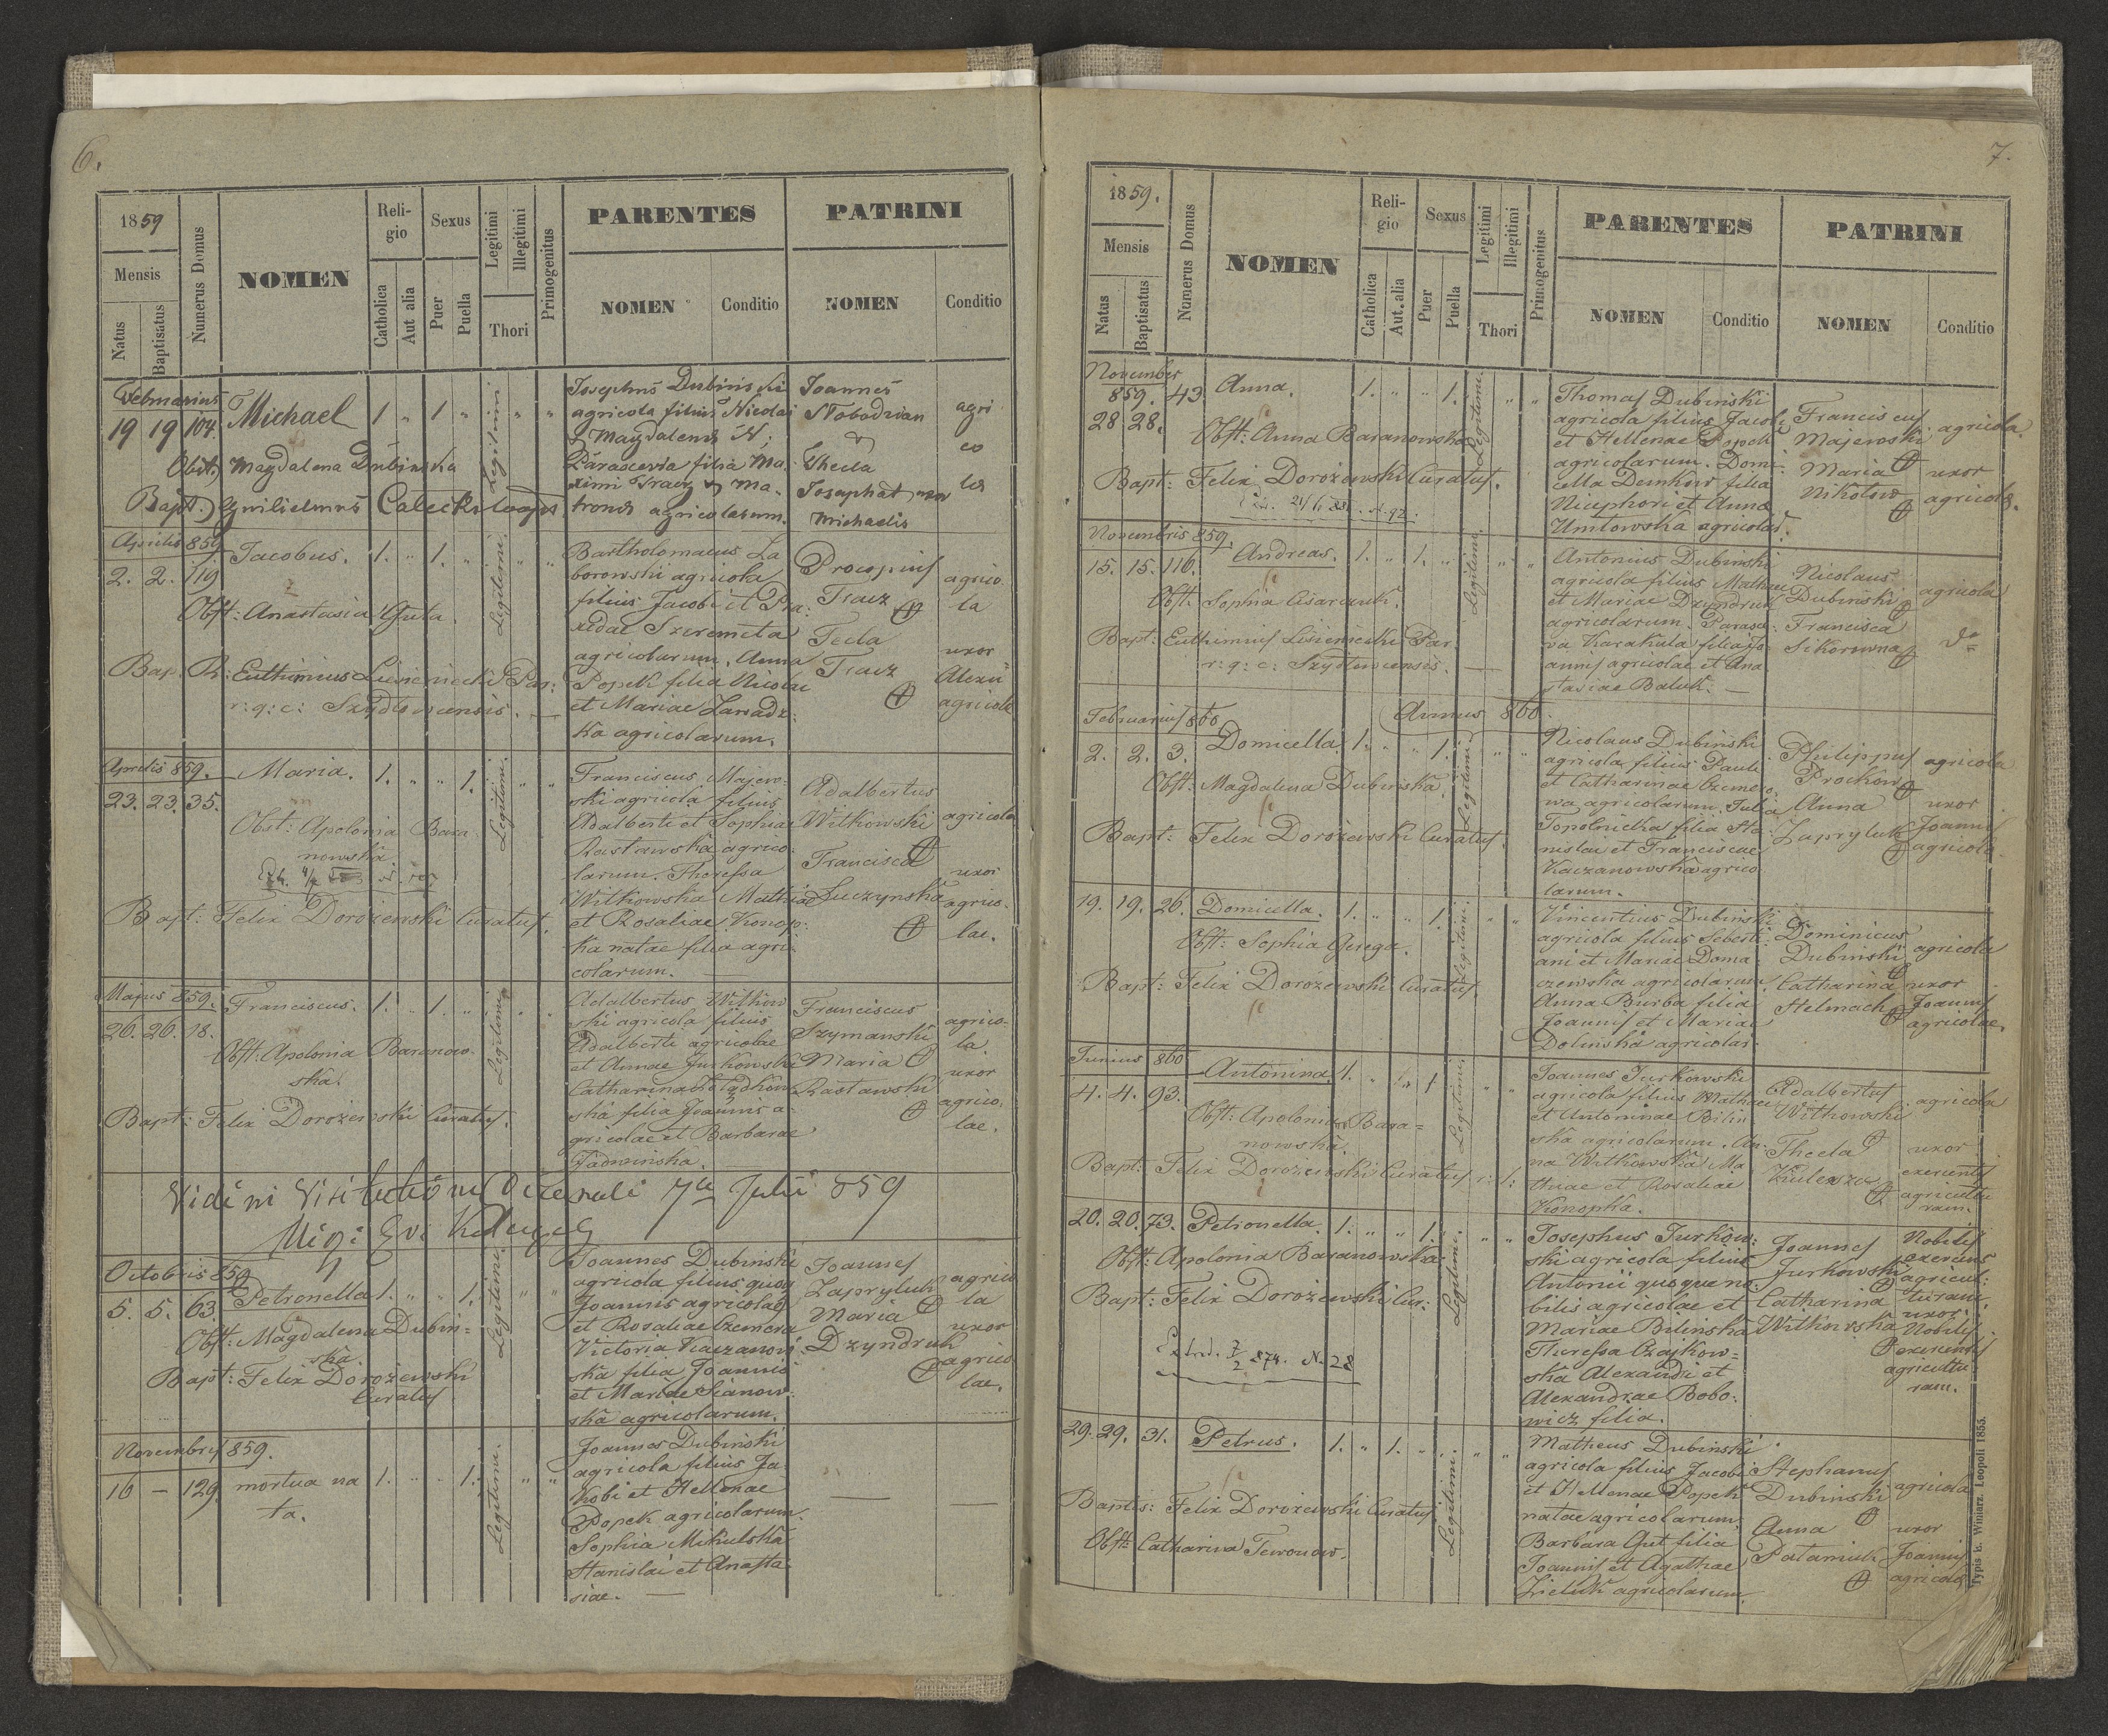 6.
1859
Mensis
Natus
Baptisatus
Numerus Domus
NOMEN
Reli-
gio
Catholica
Aut alia
Sexus
Puer
Puella
Legitimi
Illegitimi
Thori
Primogenitus
PARENTES
NOMEN
Conditio
PATRINI
NOMEN
Conditio
Februarius
19 19 104. Michael 1 " 1 " Legitimi " "
Obst) Magdalena Dubinska
Bapt.)
Josephus Dubinski
agricola filius Nicolai
& Magdalena N;
Parascevia filia Ma-
ximi Tracz & Ma-
trona agricolarum.
Joannes
&
Thecla
Josaphat uxor
Michaelis
agri
co
la
Aprilis 859
2. 2. 119 Jacobus. 1. " 1. " Legitimi. " "
Obst: Anastasia Guta.
Bap. R: Euthimius Par:
r: g: c:
Bartholomaeus La
borowski agricola
filius Jacobi et Pra:
xedae Szeremeta
agricolarum. Anna
Popek filia Nicolai
et Mariae Zawadz-
ka agricolarum.
Procopius
Tracz
Tecla
Tracz
agrico
la
uxor
Alexii
agricola
Aprilis 859.
23. 23. 35. Maria. 1. " " 1. Legitimi. " "
Obst: Apolonia Bara
nowska.
Bapt: Felix Dorożewski Curatus.
Franciscus Majew-
ski agricola filius
Adalberti et Sophiae
Rastawska agrico-
larum. Theressa
Witkowska Mathia
et Rosaliae Konop-
ka natae filia agri-
colarum.
Adalbertus
Witkowski
Francisca
Suczynska
agricola
uxor
agrico-
lae.
Majus 859.
26. 26. 18. Franciscus. 1. " 1. " Legitimi " "
Obst: Apolonia Baranow-
ska.
Bapt: Felix Dorożewski Curatus.
Adalbertus Witkow
ski agricola filius
Adalberti agricolae
et Annae Jurkowska
Catharina
ska filia Joannis a-
gricolae et Barbarae
Jadwinska.
Franciscus
Szymanski
Maria
Rastawski
agrico-
la.
uxor
agrico-
lae.
Vidi in Visitatione Decanali 7a Julii 859
Octobris 859
5. 5. 63. Petronella 1. " " 1. Legitimi. " "
Obst: Magdalena Dubin-
ska.
Bapt: Felix Dorożewski
Curatus
Joannes Dubinski
agricola filius quoq
Joannis agricolae
et Rosaliae Czemera
Victoria Kaczanow
ska filia Joannis
et Mariae Sianow-
ska agricolarum.
Joannes
Zapryluk
Maria
Dzyndruk
agrico
la
uxor
agrico
lae.
Novembris 859.
16 — 129. mortua na 1. " " 1. Legitimi. " "
ta.
Joannes Dubinski
agricola filius Ja-
kobi et Hellenae
Popek agricolarum.
Sophia Mikulska
Stanislai et Anasta
siae. —
7.
1859.
Mensis
Natus
Baptisatus
Numerus Domus
NOMEN
Reli-
gio
Catholica
Aut. alia
Sexus
Puer
Puella
Legitimi
Illegitimi
Thori
Primogenitus
PARENTES
NOMEN
Conditio
PATRINI
NOMEN
Conditio
November
859. 43 Anna. 1. " " 1. Legitimi. " "
28 28.
Obst: Anna Baranowska
Bapt: Felix Dorożewski Curatus.
Thomas Dubinski
agricola filius Jacobi
et Hellenae Popek
agricolarum. Domi-
cella Demkow filia
Nicephori et Anna
Umlowska agricolas.
Franciscus
Majewski
Maria
Nikolow
agricola.
uxor
agricolae.
Novembris 859.
15. 15. 116. Andreas. 1. " 1. " Legitimi. " "
Obst: Sophia Cisarczuk.
Bapt: Euthimius Par.
r: g: c:
Antonius Dubinski
agricola filius Mathaei
et Mariae Dzyndruk
agricolarum. Parasce-
va Karakula filia Jo-
annis agricolae et Ana
stasiae Baluk. —
Nicolaus
Dubinski
Francisca
Sikorowna
agricola
Annus 860.
Februarius 860
2. 2. 3. Domicella 1. " " 1. Legitimi " "
Obst: Magdalena Dubinska.
Bapt: Felix Dorożewski Curatus.
Nicolaus Dubinski
agricola filius Pauli
et Catharinae Czeme-
wa agricolarum. Julia
Topolnicka filia Sta-
nislai et Franciscae
Kaczanowska agrico
larum.
Philippus
Prockow
Anna
Zapryluk
agricola
uxor
Joannis
agricola
19. 19. 26. Domicella. 1. " " 1. Legitimi. " "
Obst: Sophia Gerega.
Bapt: Felix Dorożewski Curatus.
Vincentius Dubinski
agricola filius Sebasti-
ani et Mariae Doma-
czewska agricolarum
Anna Burba filia
Joannis et Mariae
Dolinska agricolar.
Dominicus
Dubinski
Catharina
Stelmach
agricola
uxor
Joannis
agricolae.
Junius 860
4. 4. 93. Antonina 1. " " 1 Legitimi. " "
Obst: Apolonia Bara=
nowska.
Bapt: Felix Dorożewski Curatus
Joannes Jurkowski
agricola filius Mathaei
et Antoninae Bilin
ska agricolarum. An-
na Witkowska Ma
thiae et Rosaliae
Konopka.
Adalbertus
Witkowski
Thecla
Kulesza
agricola
uxor
exercentis
agricultu
ram.
20. 20. 73. Petronella. 1. " " 1. Legitimi. " "
Obst: Apolonia Baranowska
Bapt: Felix Dorożewski Cur:
Extrad. 7/2 874. N. 28
Josephus Jurkow-
ski agricola filius
Antonii quoque no-
bilis agricolae et
Mariae Bilinska
Theressa Czajkow=
ska Alexandri et
Alexandrae Bobo-
wicz filia.
Joannes
Jurkowski
Catharina
Witkowska
Nobilis
exercens
agricul-
turam.
uxor
Nobilis
exercentis
agricultu
ram.
29. 29. 31. Petrus. 1. " 1. " Legitimi. " "
Baptis: Felix Dorożewski Curatus
Obst: Catharina
Matheus Dubinski
agricola filius Jacobi
et Hellenae Popek
natae agricolarum
Barbara Gut filia
Joannis et Agathae
Zieluk agricolarum.
Stephanus
Dubinski
Anna
Patamiuk
agricola
uxor
Joannis
agricolae
Typis E. Winiarz. Leopoli 1855.